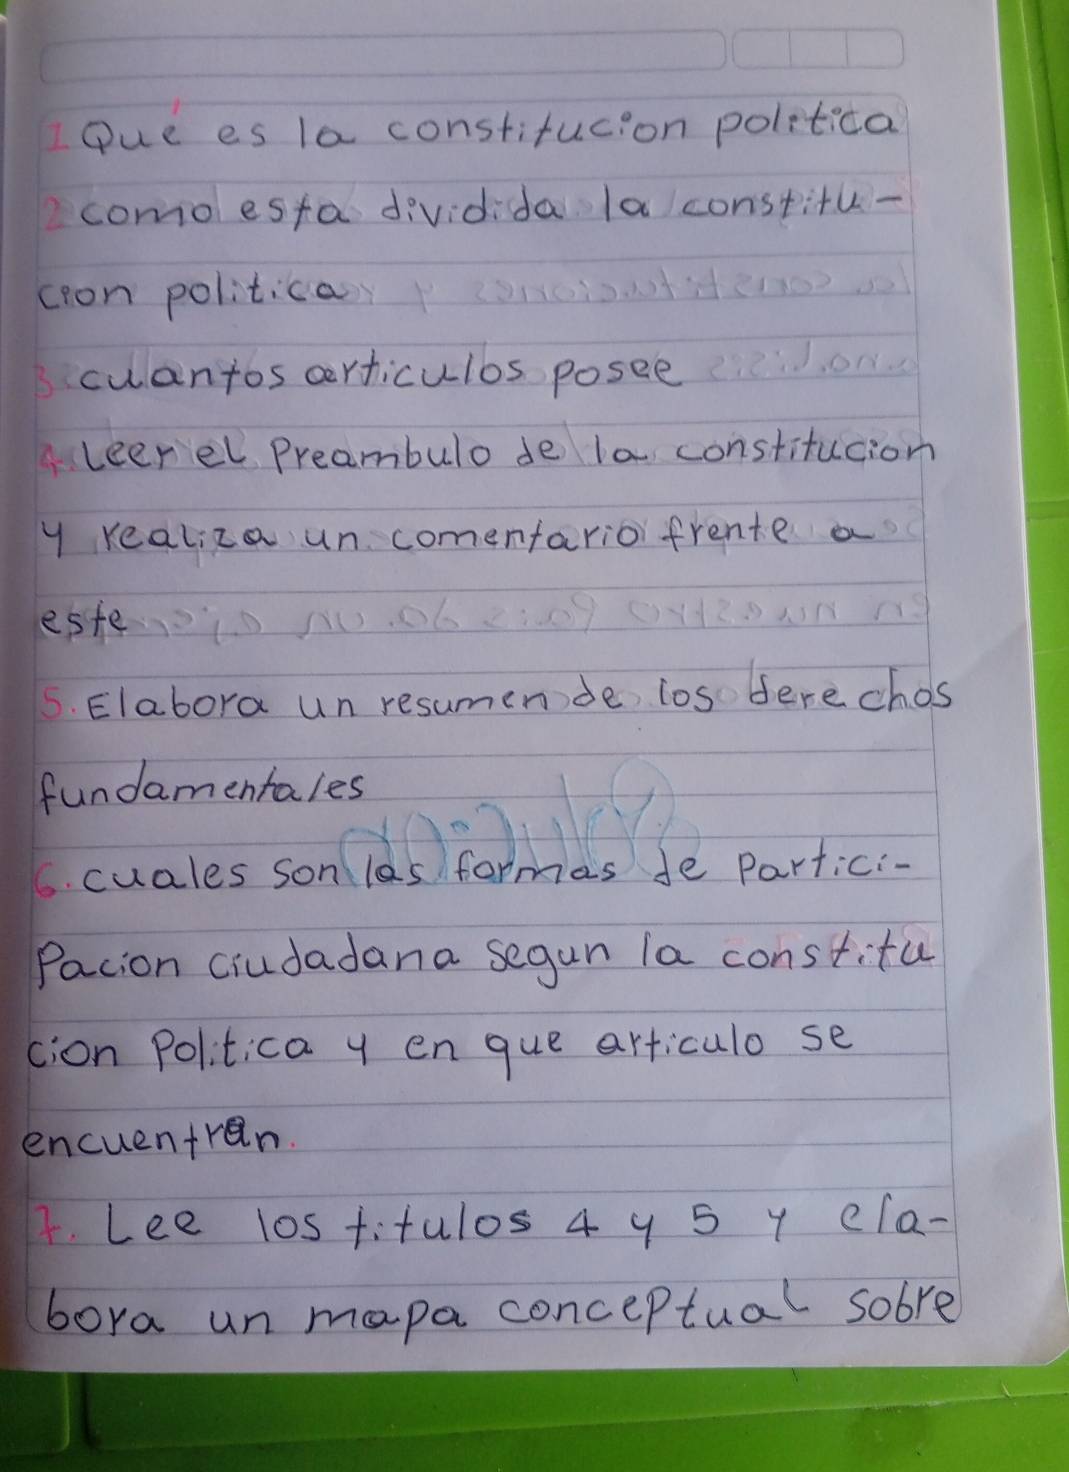 1 Qué es la constitucion politica
2 como esta dividida la constitu-
cion politica
3 cuantos articulos posee
4. Leer el Preambulo de la constitucion
y realiza un comentario frente a
este
5. Elabora un resumen de los derechos
fundamentales
6. cuales son las formas de Partici-
Pacion ciudadana segun la constitu
cion Politica y en que articulo se
encuentran.
7. Lee los titulos 4 y 5 y ela-
bora un mapa conceptual sobre